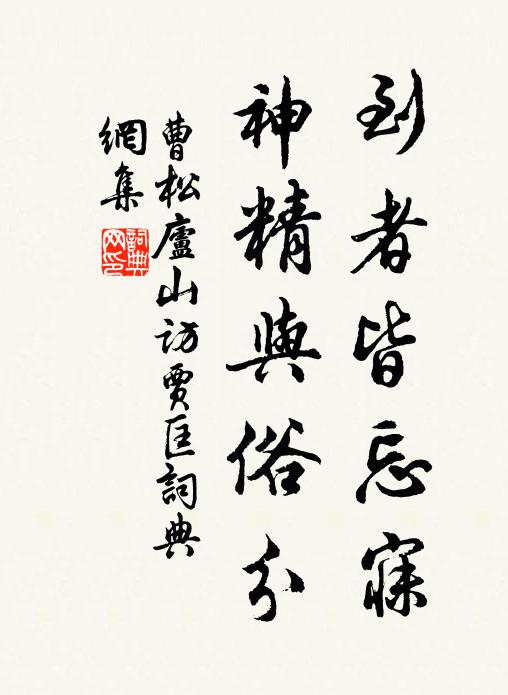 到者皆忘寐
神精與俗分
曹松廬山訪賈匡詞典
網集
詞典
网印